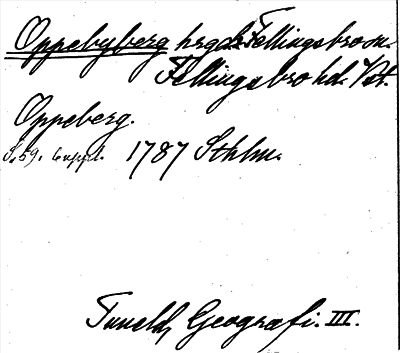 Oppebyberg hrgd. Fellingsbro sn.
Fellingsbro hd. Vstm.
Oppeberg.
S. 59. 6 uppl. 1787 Sthlm.
Tuneld, Geografi. III.